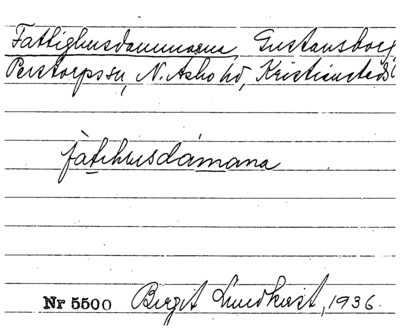 Fattighusdammarna, Gustavsborg
Perstorps sn, N. Åsbo hd, Kristianstads l
fàtihusdámana
Nr 5500 Birgit Lundkvist, 1936.